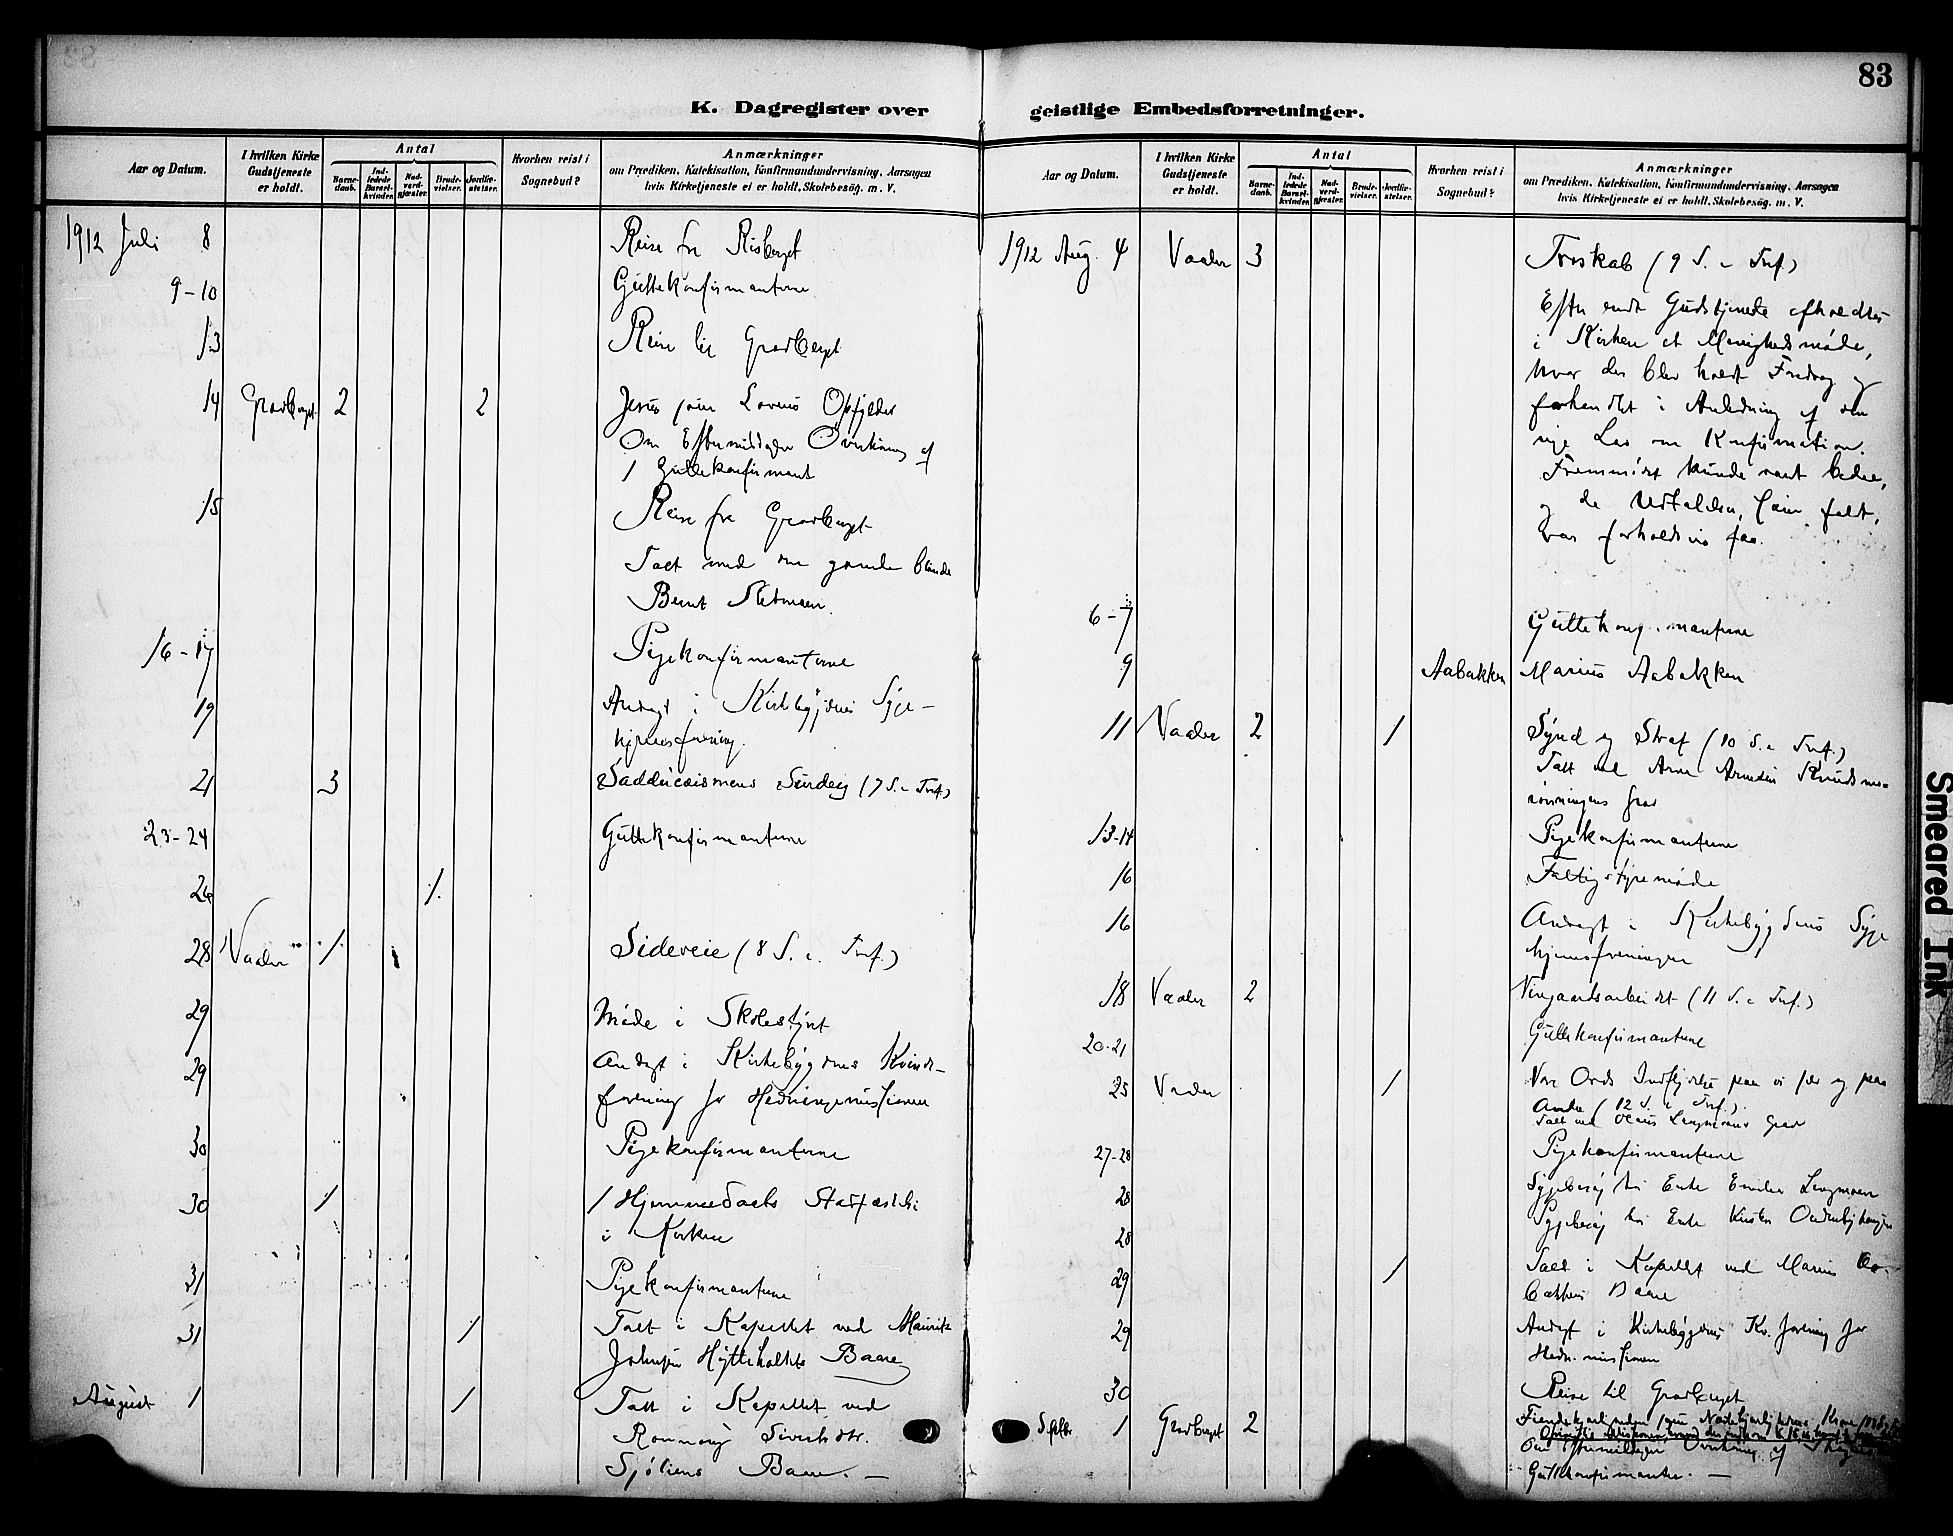 83
K. Dagregister over
geistlige Embedsforretninger.
Aar og Datum.
I hvilken Kirke Gudstjeneste er holdt.
Antal
Barne-daab.
Ind-ledede Barsel-kvinder.
Nad-verd-gjæster.
Brude-vielser.
Jordfæ-stelser.
Hvorhen reist i Sognebud?
Anmærkninger
om Prædiken, Katekisation, Konfirmandundervisning, Aarsagen
hvis Kirketjeneste ei er holdt, Skolebesøg. m. V.
1912 Juli 8 Reise fra Risberget
9-10 Guttekonfirmanterne
13 Reise til Gravberget
14 Gravberget 2 2 Jesus som Lovens Opfylder
Om Eftermiddagen Overhøring af
1 Guttekonfirmant
15 Reise fra Gravberget
Talt med den gamle blinde
Bernt Sletmoen.
16-17 Pigekonfirmanterne
19 Andagt i Kirkebygdens Syge-
hjemsforening.
21 3 Sadducæismens Surdeig (7 S. e. Tref.)
23-24 Guttekonfirmanterne
26 1.
28 Vaaler 1. Sideveie (8 S. e. Tref.)
29 Møde i Skolestyret
29 Andagt i Kirkebygdens Kvinde-
forening for Hedningemissionen
30 Pigekonfirmanterne
30 1 1 Hjemmedaabs Stadfæstelse
i Kirken
31 Pigekonfirmanterne
31 1 Talt i Kapellet ved Mauritz
Johnsen Hytteholtets Baare
August 1 1 Talt i Kapellet ved
Rønnaug Sivertsdtr.
Sjøliens Baare. —
Aar og Datum.
I hvilken Kirke Gudstjeneste er holdt.
Antal
Barne-daab.
Ind-ledede Barsel-kvinder.
Nad-verd-gjæster.
Brude-vielser.
Jordfæ-stelser.
Hvorhen reist i Sognebud?
Anmærkninger
om Prædiken, Katekisation, Konfirmandundervisning, Aarsagen
hvis Kirketjeneste ei er holdt, Skolebesøg. m. V.
1912 Aug. 4 Vaaler 3 Troskab (9 S. e. Tref.)
Efter endt Gudstjeneste afholdtes
i Kirken et Menighedsmøde,
hvor der blev holdt Foredrag og
forhandlet i Anledning af den
nye Lov om Konfirmation.
Fremmødet kunde været bedre,
og de Udtalelser, som faldt,
var forholdsvis faa.
6-7 Guttekonfirmanterne
9 Aabakken Marius Aabakken
11 Vaaler 2 1 Synd og Straf (10 S. e. Tref.)
Talt ved Arne Knudsmo-
rønningens Grav
13-14 Pigekonfirmanterne
16 Fattigstyremøde
16 Andagt i Kirkebygdens Syge
hjemsforeningen
18 Vaaler 2 Vingaardsarbeidet (11 S. e. Tref.)
20-21 Guttekonfirmanterne
25 Vaaler 1 Vore Ords Indflydelse paa os selv og paa
Andre (12 S. e. Tref.).
Talt ved Olaus Langmoens Grav
27-28 Pigekonfirmanterne
28 Sygebesøg hos Enke Emilie Langmoen
28 Sygebesøg hos Enke
29 1 Talt i Kapellet ved Marius Aa-
bakkens Baare
29 Andagt i Kirkebygdens Kv. forening for
Hedn. missionen
30 Reise til Gravberget
Septbr 1 Gravberget 2 Fiendekjærligheden som
Om Eftermiddagen Overhøring af
Guttekonfirmanter. —
Smeared Ink